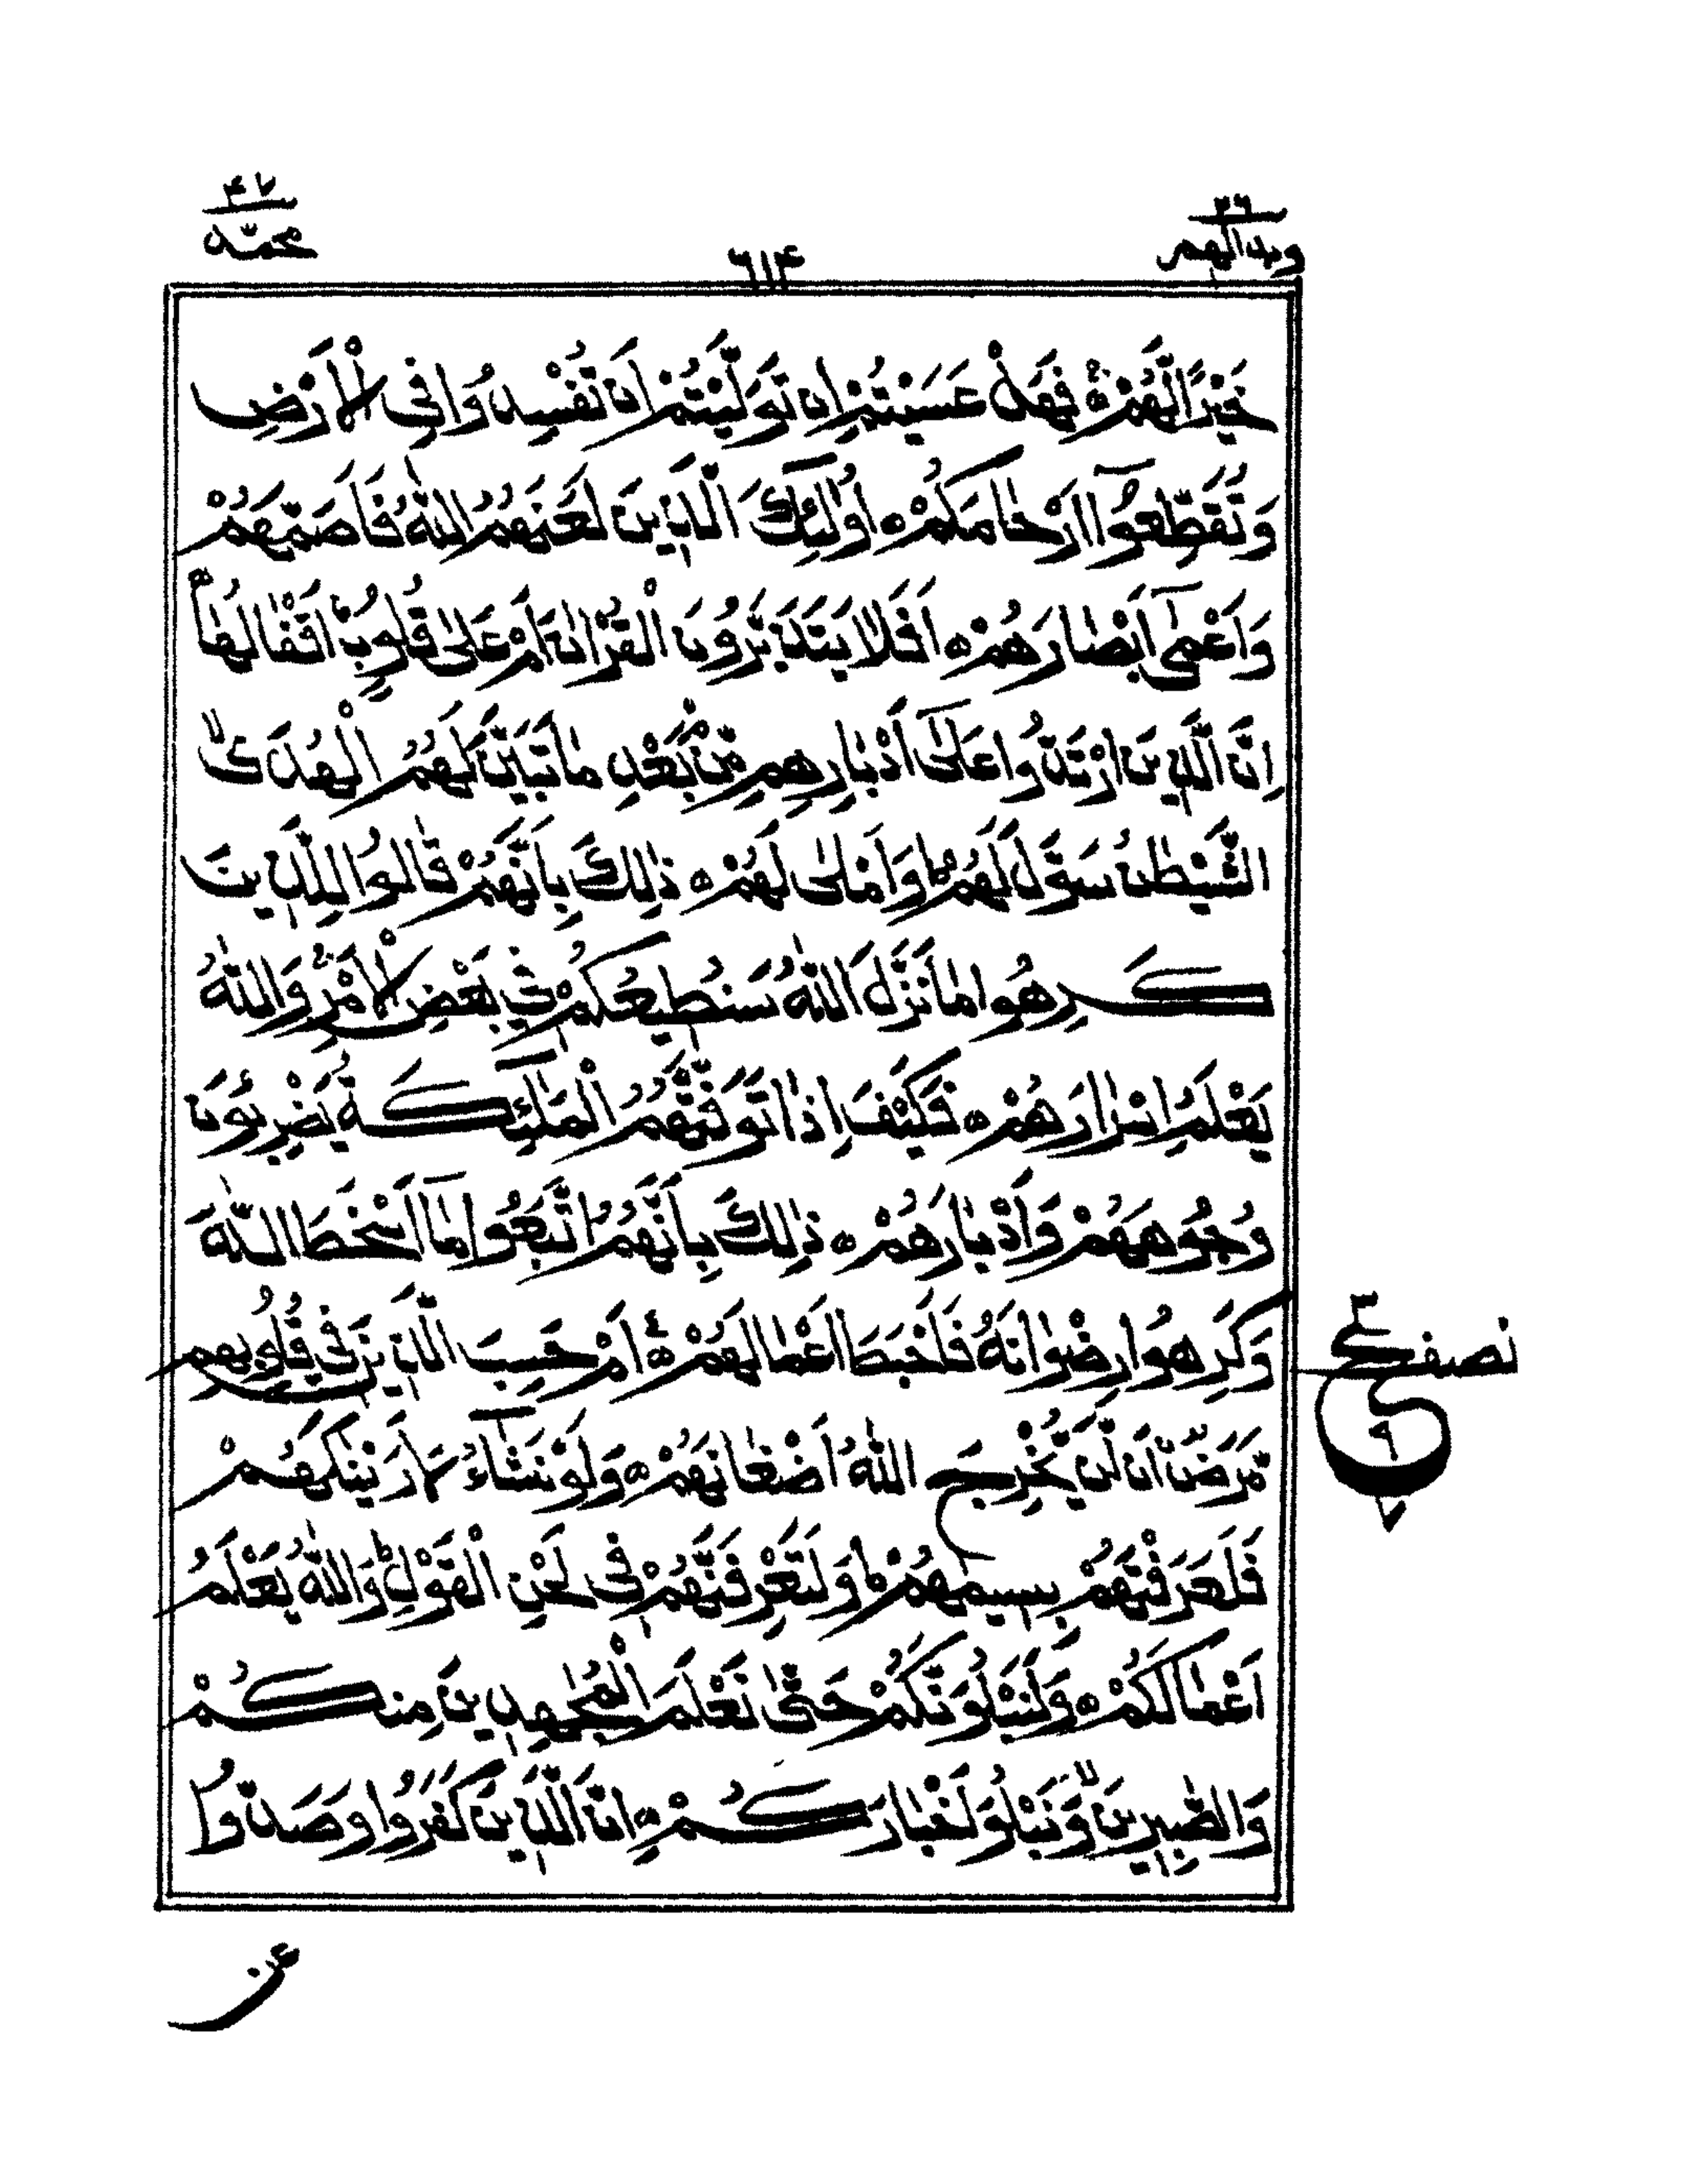 ۴۷
محمّد
۶۱۴
خَيْرًا لَّهُمْ ۚ فَهَلْ عَسَيْتُمْ اِنْ تَوَلَّيْتُمْ اَنْ تُفْسِدُوْا فِى الْاَرْضِ
وَتُقَطِّعُوْٓا اَرْحَامَكُمْ ۝ اُولٰٓئِكَ الَّذِيْنَ لَعَنَهُمُ اللّٰهُ فَاَصَمَّهُمْ
وَاَعْمٰٓى اَبْصَارَهُمْ ۝ اَفَلَا يَتَدَبَّرُوْنَ الْقُرْاٰنَ اَمْ عَلٰى قُلُوْبٍ اَقْفَالُهَا ۝
اِنَّ الَّذِيْنَ ارْتَدُّوْا عَلٰٓى اَدْبَارِهِمْ مِّنْۢ بَعْدِ مَا تَبَيَّنَ لَهُمُ الْهُدَى ۙ
الشَّيْطٰنُ سَوَّلَ لَهُمْ ۭ وَاَمْلٰى لَهُمْ ۝ ذٰلِكَ بِاَنَّهُمْ قَالُوْا لِلَّذِيْنَ
كَرِهُوْا مَا نَزَّلَ اللّٰهُ سَنُطِيْعُكُمْ فِيْ بَعْضِ الْاَمْرِ ۚ وَاللّٰهُ
يَعْلَمُ اِسْرَارَهُمْ ۝ فَكَيْفَ اِذَا تَوَفَّتْهُمُ الْمَلٰٓئِكَةُ يَضْرِبُوْنَ
وُجُوْهَهُمْ وَاَدْبَارَهُمْ ۝ ذٰلِكَ بِاَنَّهُمُ اتَّبَعُوْا مَآ اَسْخَطَ اللّٰهَ
وَكَرِهُوْا رِضْوَانَهٗ فَاَحْبَطَ اَعْمَالَهُمْ ۝ اَمْ حَسِبَ الَّذِيْنَ فِيْ قُلُوْبِهِمْ
مَّرَضٌ اَنْ لَّنْ يُّخْرِجَ اللّٰهُ اَضْغَانَهُمْ ۝ وَلَوْ نَشَآءُ لَاَرَيْنٰكَهُمْ
فَلَعَرَفْتَهُمْ بِسِيْمٰهُمْ ۭ وَلَتَعْرِفَنَّهُمْ فِيْ لَحْنِ الْقَوْلِ ۭ وَاللّٰهُ يَعْلَمُ
اَعْمَالَكُمْ ۝ وَلَنَبْلُوَنَّكُمْ حَتّٰى نَعْلَمَ الْمُجٰهِدِيْنَ مِنْكُمْ
وَالصّٰبِرِيْنَ ۙ وَنَبْلُوَا۟ اَخْبَارَكُمْ ۝ اِنَّ الَّذِيْنَ كَفَرُوْا وَصَدُّوْا
نصف
۹
۷
عن